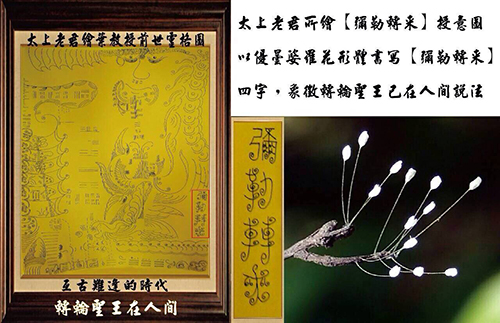 太上老君繪葉教授前世靈格圖
亙古難逢的時代
轉輪聖王在人间
太上老君所繪【彌勒轉来】授意圖
以優曇婆羅花形體書写【彌勒轉来】
四字，象徵轉輪聖王已在人间說法
彌勒轉來